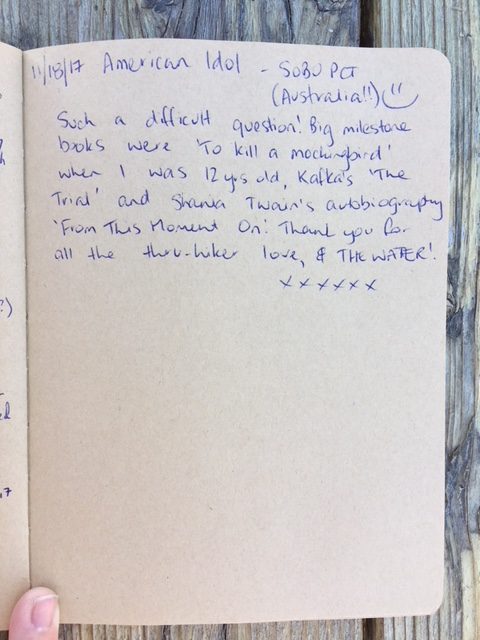 11/18/17 American Idol - SOBO PCT
(Australia!!)
Such a difficult question! Big milestone
books were 'To kill a mockingbird'
when I was 12 yrs old, Kafka's 'The
Trial' and Shania Twain's autobiography
'From This Moment On'. Thank you for
all the thru-hiker love, & THE WATER!
x x x x x x
?)
7